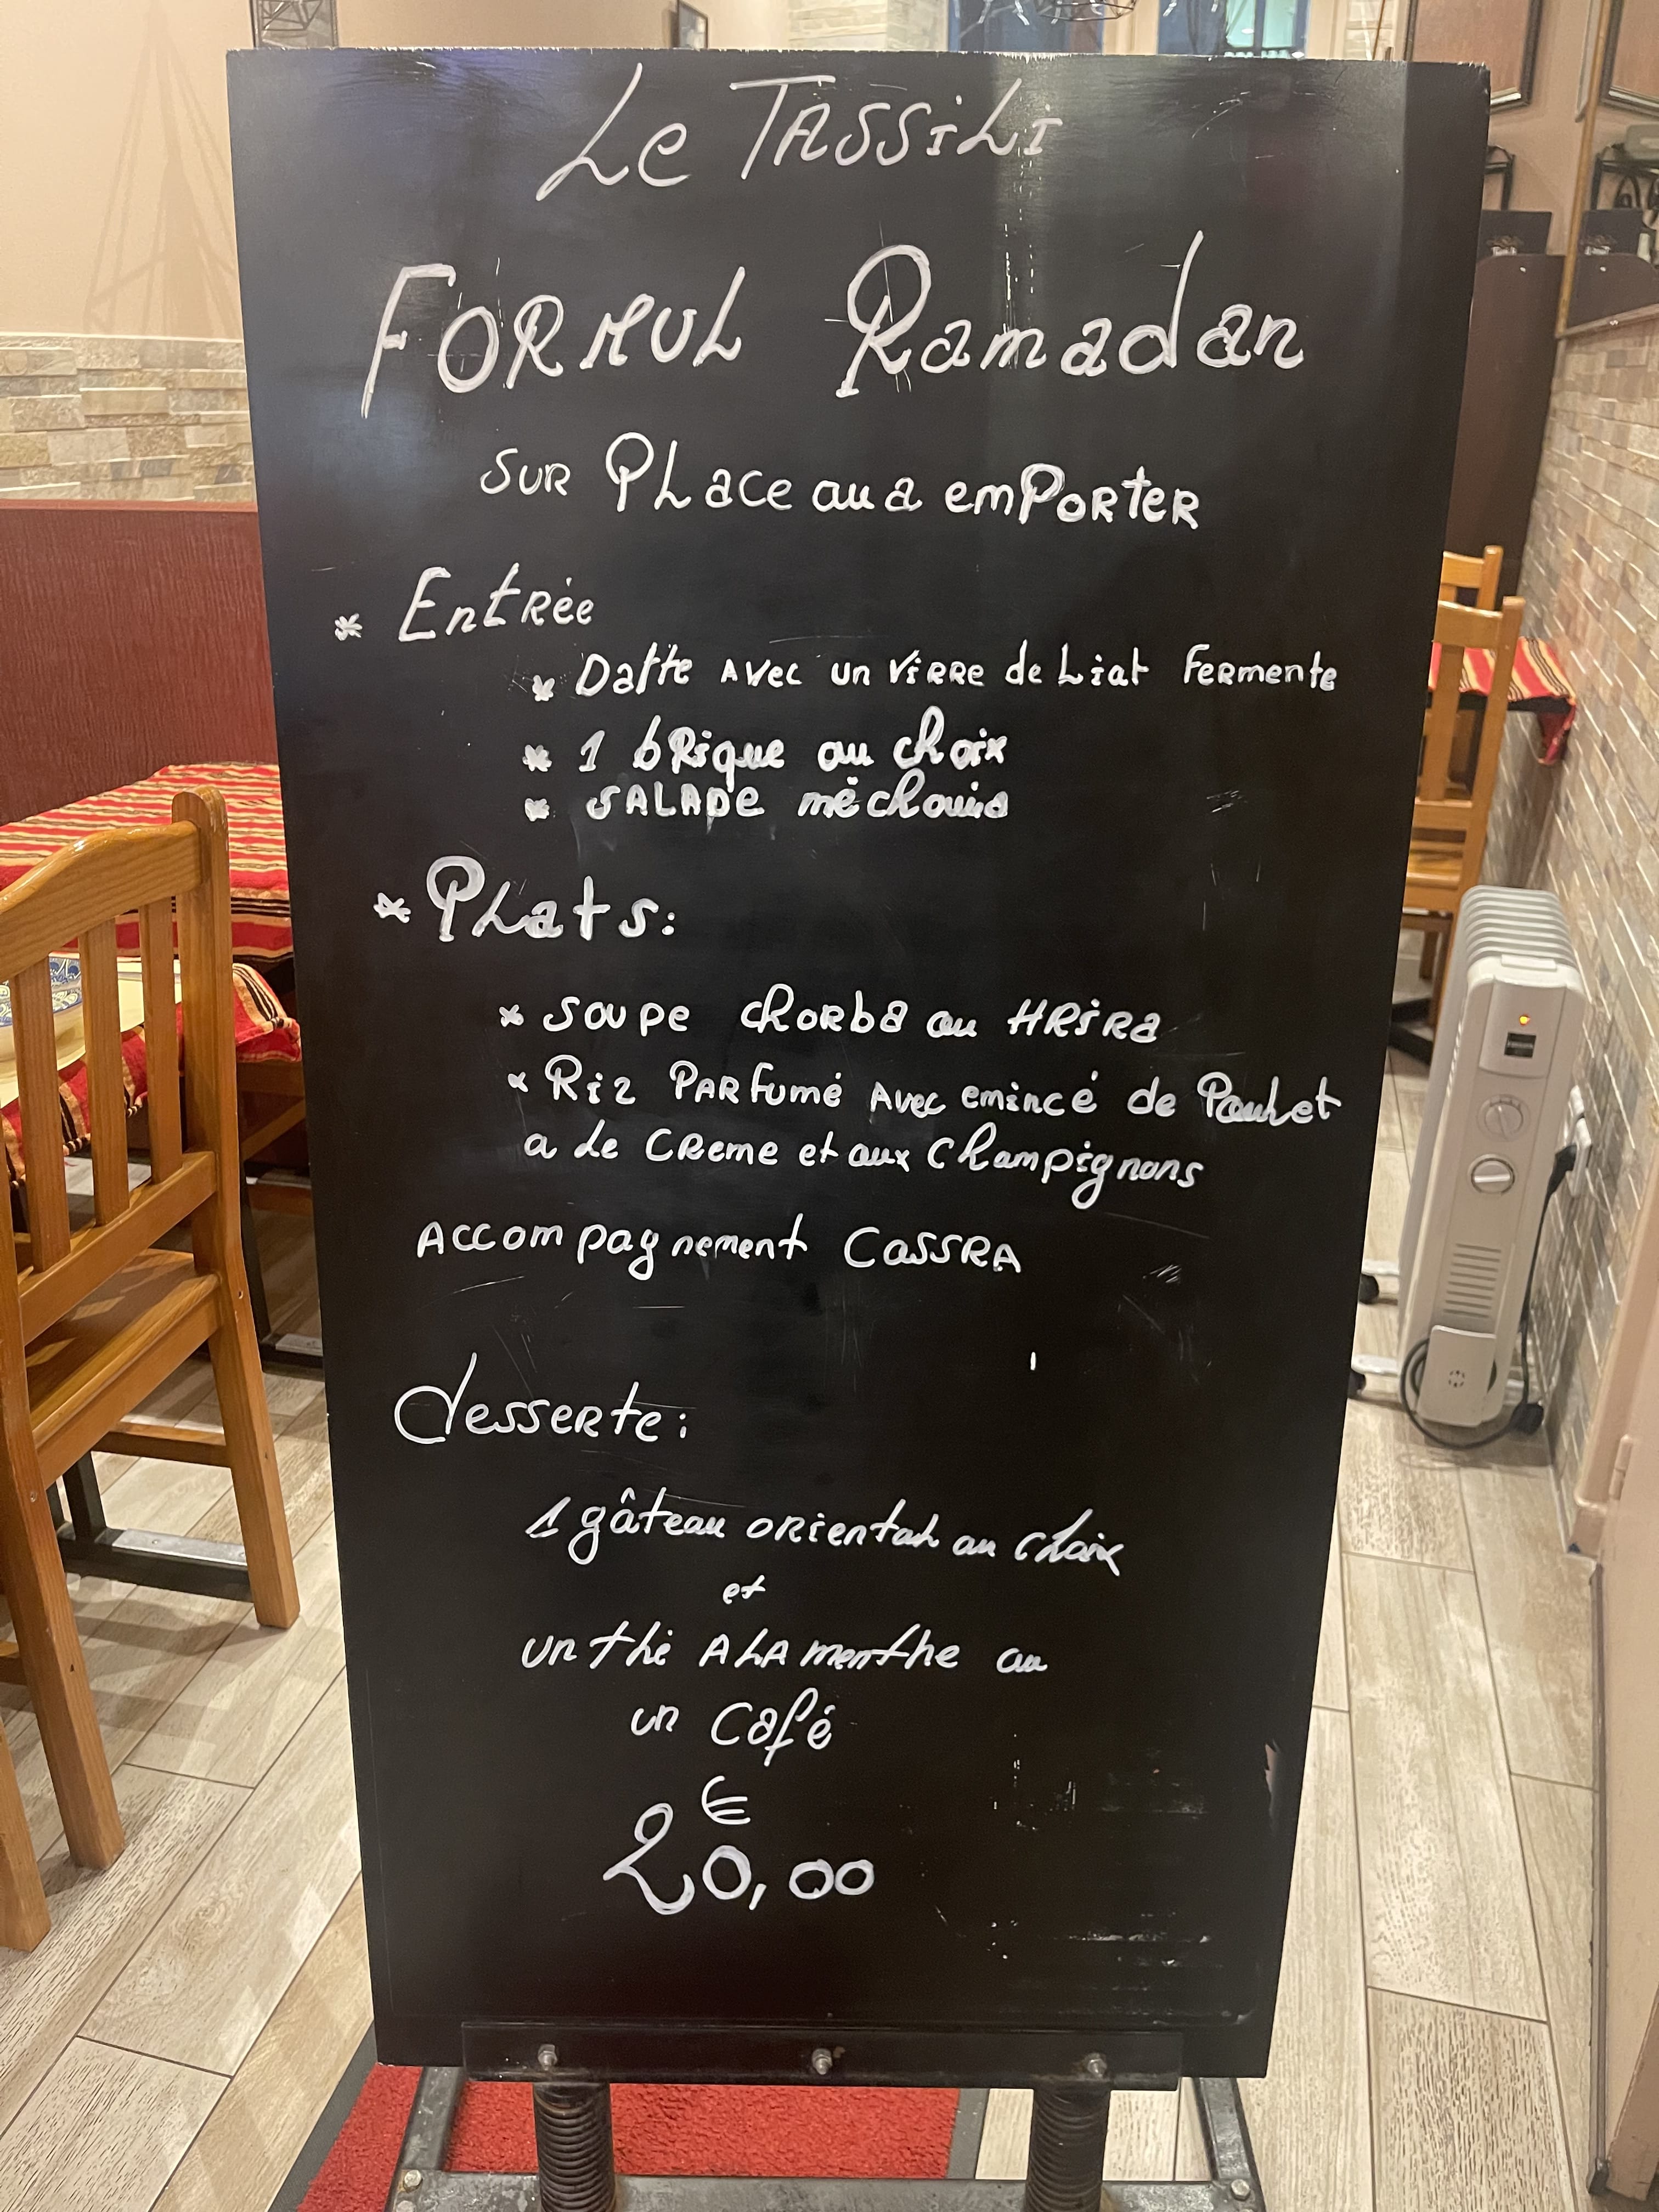 Le TASSiLi
FORMUL Ramadan
SUR PLace au a emPORteR
* Entrée
* Datte AVec un ViRRe de Liat FeRmente
* 1 bRique au choix
* SALADe méchouia
* PLats:
* soupe choRba au HRiRa
* Riz PARfumé Avec emincé de Poulet
a le CReme et aux champignons
Accompagnement CaSSRA
desseRte:
1 gâteau oRiental au choix
et
un thé A LA menthe au
un Café
€
20,00